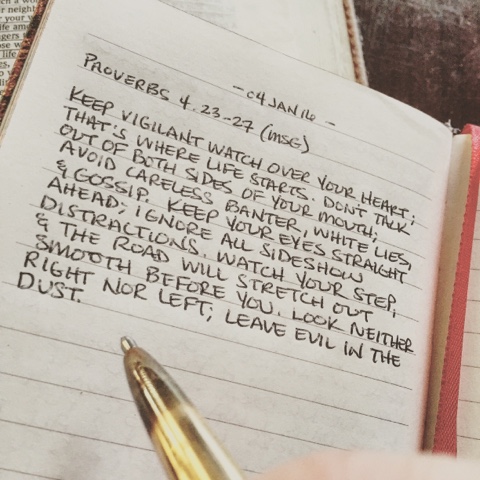 - 04 JAN 16 -
PROVERBS 4.23-27 (MSG)
KEEP VIGILANT WATCH OVER YOUR HEART;
THAT'S WHERE LIFE STARTS. DON'T TALK
OUT OF BOTH SIDES OF YOUR MOUTH;
AVOID CARELESS BANTER, WHITE LIES,
& GOSSIP. KEEP YOUR EYES STRAIGHT
AHEAD; IGNORE ALL SIDESHOW
DISTRACTIONS. WATCH YOUR STEP,
& THE ROAD WILL STRETCH OUT
SMOOTH BEFORE YOU. LOOK NEITHER
RIGHT NOR LEFT; LEAVE EVIL IN THE
DUST.